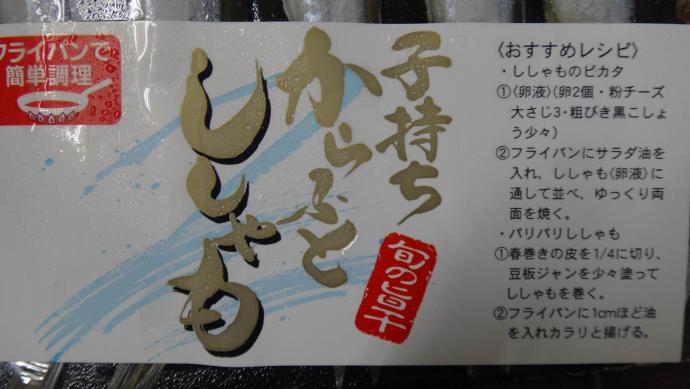 フライパンで
簡単調理
子持ち
からふと
ししゃも
旬の旨干
〈おすすめレシピ〉
・ししゃものピカタ
①〈卵液〉(卵2個・粉チーズ
大さじ3・粗びき黒こしょ
う少々)
②フライパンにサラダ油を
入れ、ししゃも〈卵液〉に
通して並べ、ゆっくり両
面を焼く。
・パリパリししゃも
①春巻きの皮を1/4に切り、
豆板ジャンを少々塗って
ししゃもを巻く。
②フライパンに1cmほど油
を入れカラリと揚げる。